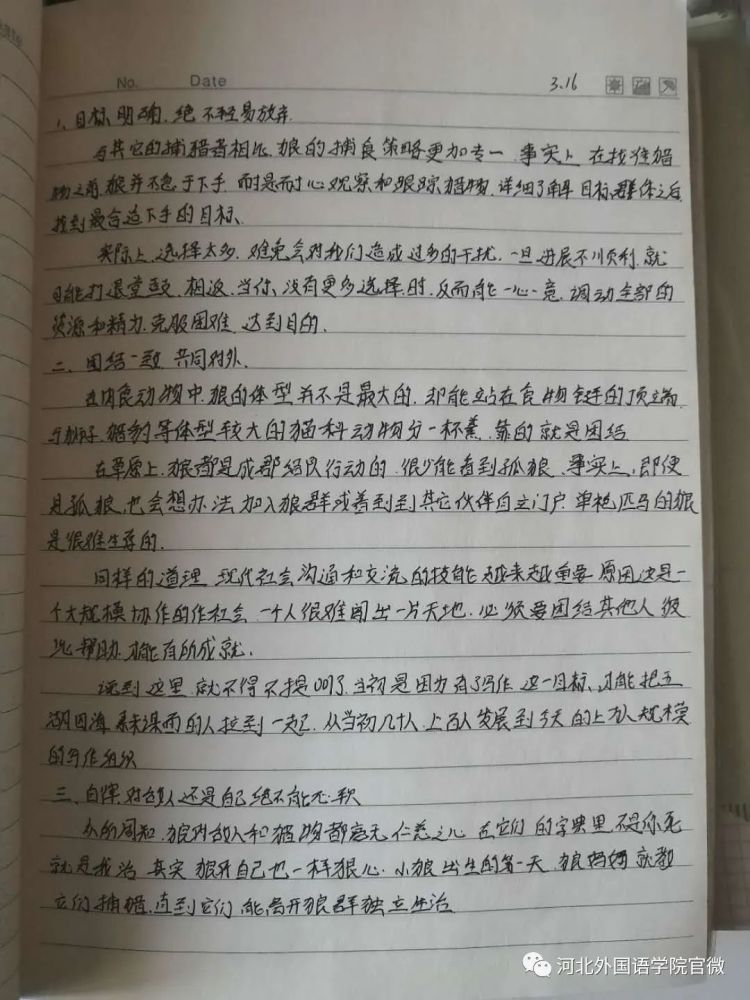 No. Date 3.16
1、目标明确,绝不轻易放弃.
与其它的捕猎者相比,狼的捕食策略更加专一.事实上,在找准猎
物之前,狼并不急于下手,而是耐心观察和跟踪猎物,详细了解目标群体之后,
找到最合适下手的目标、
实际上,选择太多,难免会对我们造成过多的干扰,一旦进展不顺利,就
可能打退堂鼓,相返,当你没有更多选择时,反而能一心一意,调动全部的
资源和精力,克服困难,达到目的.
二、团结一致,共同对外、
在肉食动物中,狼的体型并不是最大的,却能站在食物链的顶端,
与狮子、猎豹等体型较大的猫科动物分一杯羹,靠的就是团结
在草原上,狼都是成群结队行动的,很少能看到孤狼,事实上,即便
是孤狼,也会想办法加入狼群或着到到其它伙伴自立门户,单枪匹马的狼
是很难生存的.
同样的道理,现代社会沟通和交流的技能越来越重要,原因这是一
个大规模协作的作社会,一个人很难闯出一片天地,必须要团结其他人,彼
此帮助,才能有所成就.
说到这里,就不得不提 了,当初是因为有了写作这一目标,才能把五
湖四海,素未谋面的人拉到一起,从当初几十人,上百人发展到今天的上万人规模
的写作组织
三、自律,对敌人还是自己绝不能心软
众所周知,狼对敌人和猎物都毫无仁慈之心,在它们的字典里,不是你死
就是我活,其实,狼对自己也一样狠心,小狼出生的第一天,狼妈妈就教
它们捕猎,直到它们能离开狼群独立生活
河北外国语学院官微